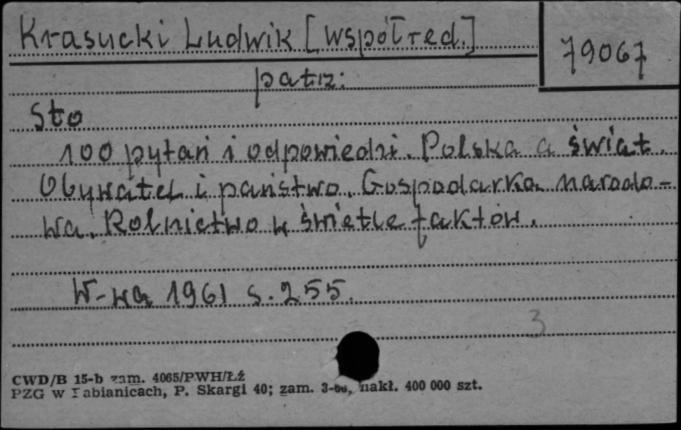 Krasucki Ludwik [współred.]
79067
patrz:
Sto
100 pytań i odpowiedzi. Polska a świat.
Obywatel i państwo. Gospodarka narodo-
wa. Rolnictwo w świetle faktów.
W-wa 1961 s. 255.
3
CWD/B 15-b zam. 4065/PWH/Łź
PZG w Pabianicach, P. Skargi 40; zam. nakł. 400 000 szt.